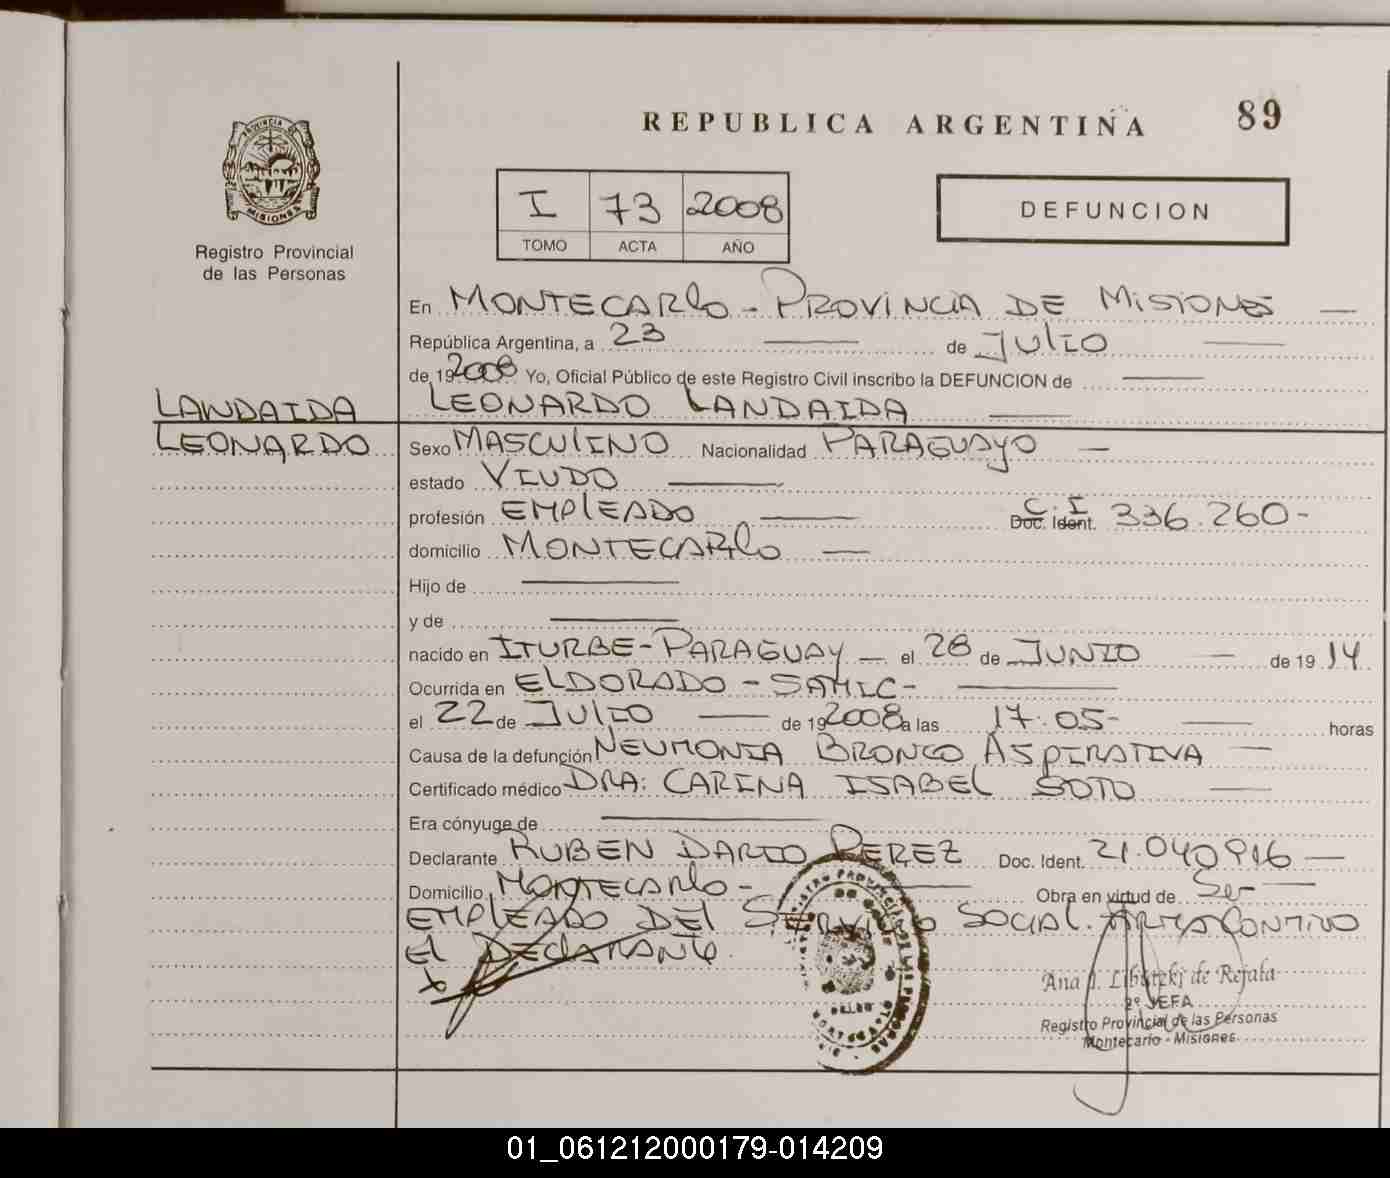 REPUBLICA ARGENTINA
89
PROVINCIA DE
MISIONES
Registro Provincial
de las Personas
I 73 2008
TOMO ACTA AÑO
DEFUNCION
En MONTECARLO - PROVINCIA DE MISIONES
República Argentina, a 23 de JULIO
de 192008 Yo, Oficial Público de este Registro Civil inscribo la DEFUNCION de
LANDAIDA
LEONARDO
LEONARDO LANDAIDA
Sexo MASCULINO Nacionalidad PARAGUAYO
estado VIUDO
profesión EMPLEADO C.I Doc. Ident. 336.260-
domicilio MONTECARLO
Hijo de
y de
nacido en ITURBE-PARAGUAY el 28 de JUNIO de 19 14
Ocurrida en ELDORADO - SAMIC-
el 22 de JULIO de 192008 a las 17:05- horas
Causa de la defunción NEUMONIA BRONCO ASPIRATIVA
Certificado médico DRA: CARINA ISABEL SOTO
Era cónyuge de
Declarante RUBEN DARIO PEREZ Doc. Ident. 21.040916
Domicilio MONTECARLO- Obra en virtud de Ser
EMPLEADO DEL SERVICIO SOCIAL.
El DECLARANTE
Ana de Rejala
2º JEFA
Registro Provincial de las Personas
Montecarlo - Misiones
01_061212000179-014209